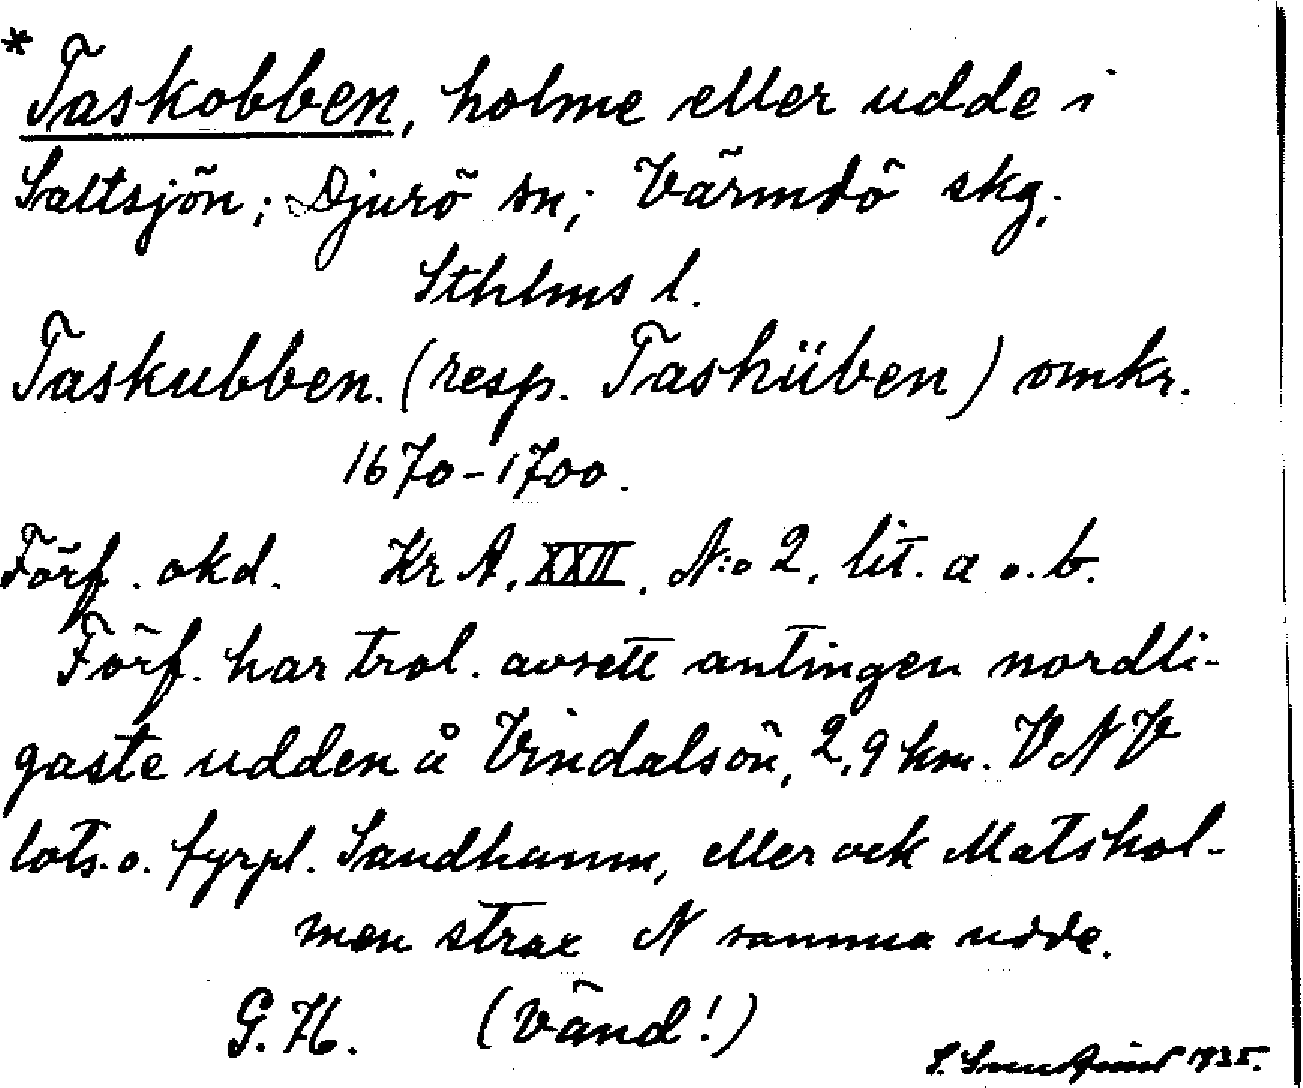 * Taskobben, holme eller udde i
Saltsjön; Djurö sn; Värmdö skg;
Sthlms l.
Taskubben. (resp. Tashüben) omkr.
1670-1700.
Förf. okd. Kr A. XXII. N:o 2. lit. a o. b.
Förf. har trol. avsett antingen nordli-
gaste udden å Vindalsön, 2,9 km. VNV
lots. o. fyrpl. Sandhamn, eller ock Matshol-
men strax N samma udde.
G. H. (Vänd!)
S. 1935.